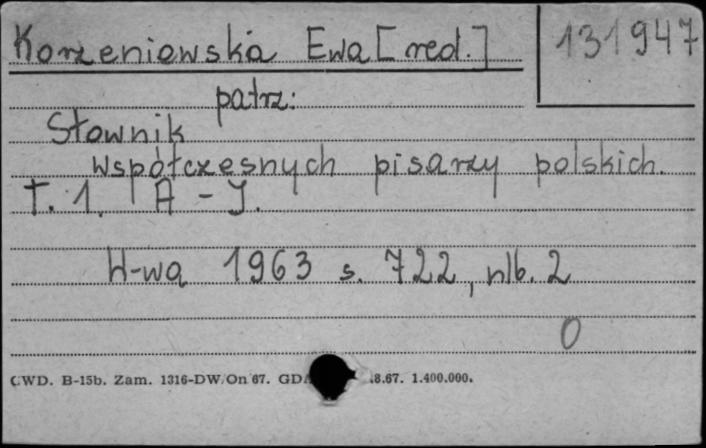 Korzeniewska Ewa [red.]
131947
patrz:
Słownik
współczesnych pisarzy polskich.
T. 1. A - J.
W-wa 1963 s. 722, nlb. 2
0
CWD. B-15b. Zam. 1316-DW/On/67. GDA .8.67. 1.400.000.